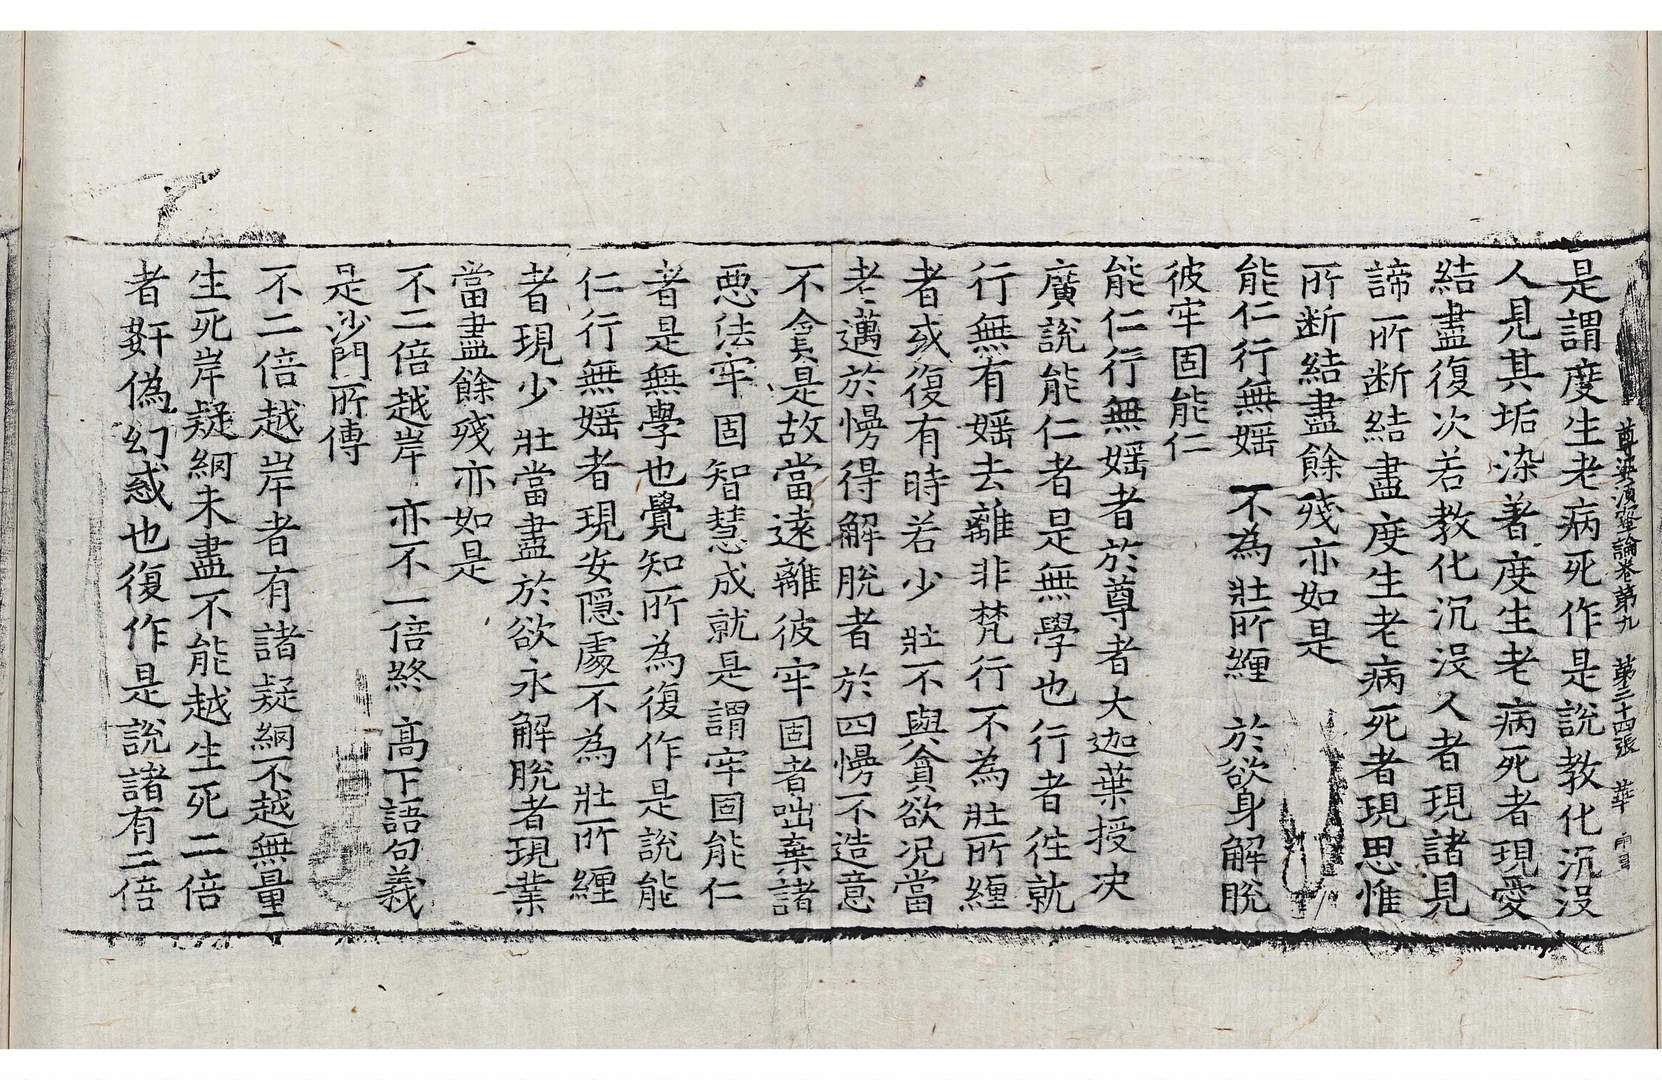 尊婆須蜜論卷第九　第三十四張　華
是謂度生老病死作是說教化沉沒
人見其垢染著度生老病死者現愛
結盡復次若教化沉沒人者現諸見
諦所断結盡度生老病死者現思惟
所断結盡餘殘亦如是
能仁行無婬　不為壯所纏　於欲身解脫
彼牢固能仁
能仁行無婬者於尊者大迦葉授决
廣說能仁者是無學也行者徃就
行無有婬去離非梵行不為壯所纏
者或復有時若少壯不與貪欲况當
老邁於慢得解脫者於四慢不造意
不貪是故當遠離彼牢固者咄棄諸
惡法牢固智慧成就是謂牢固能仁
者是無學也覺知所為復作是說能
仁行無婬者現安隱處不為壯所纏
者現少壯當盡於欲永解脫者現業
當盡餘殘亦如是
不二倍越岸　亦不一倍終　高下語句義
是沙門所傳
不二倍越岸者有諸疑網不越無量
生死岸疑網未盡不能越生死二倍
者姧偽幻惑也復作是說諸有二倍